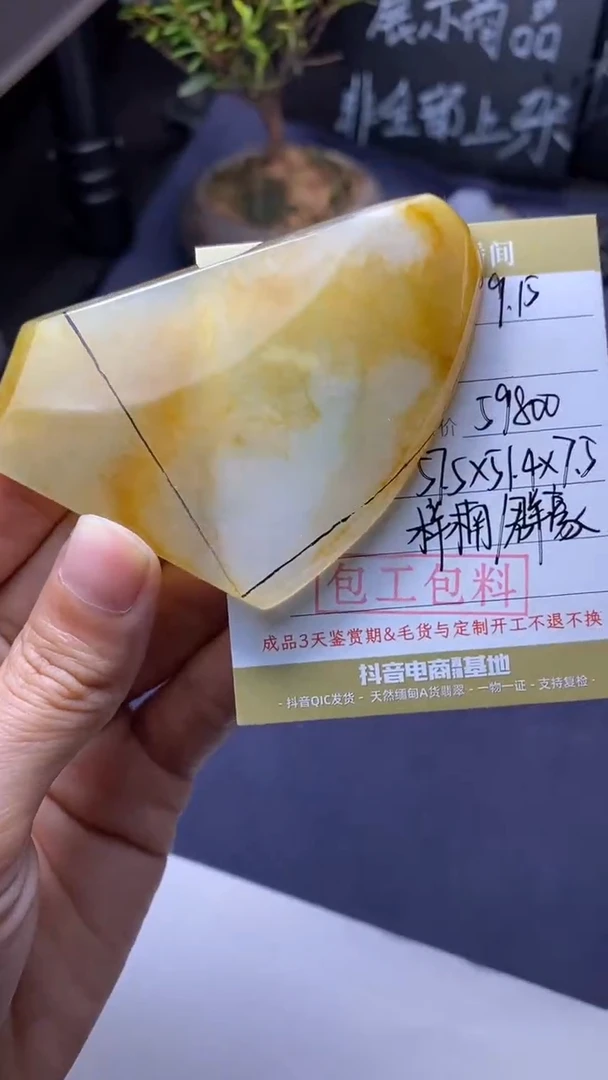 展示商品
非全部上架
时间
9.15
价 59800
57.5×51.4×7.5
祥楠/群豪
包工包料
成品3天鉴赏期&毛货与定制开工不退不换
抖音电商 基地
- 抖音QIC发货 - 天然缅甸A货翡翠 - 一物一证 - 支持复检 -